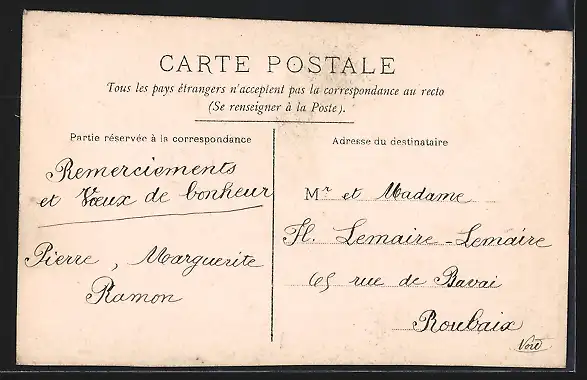 CARTE POSTALE
Tous les pays étrangers n'acceptent pas la correspondance au recto
(Se renseigner à la Poste).
Partie réservée à la correspondance
Remerciements
et Vœux de bonheur
Pierre, Marguerite
Ramon
Adresse du destinataire
Mr et Madame
H. Lemaire-Lemaire
65 rue de Bavai
Roubaix